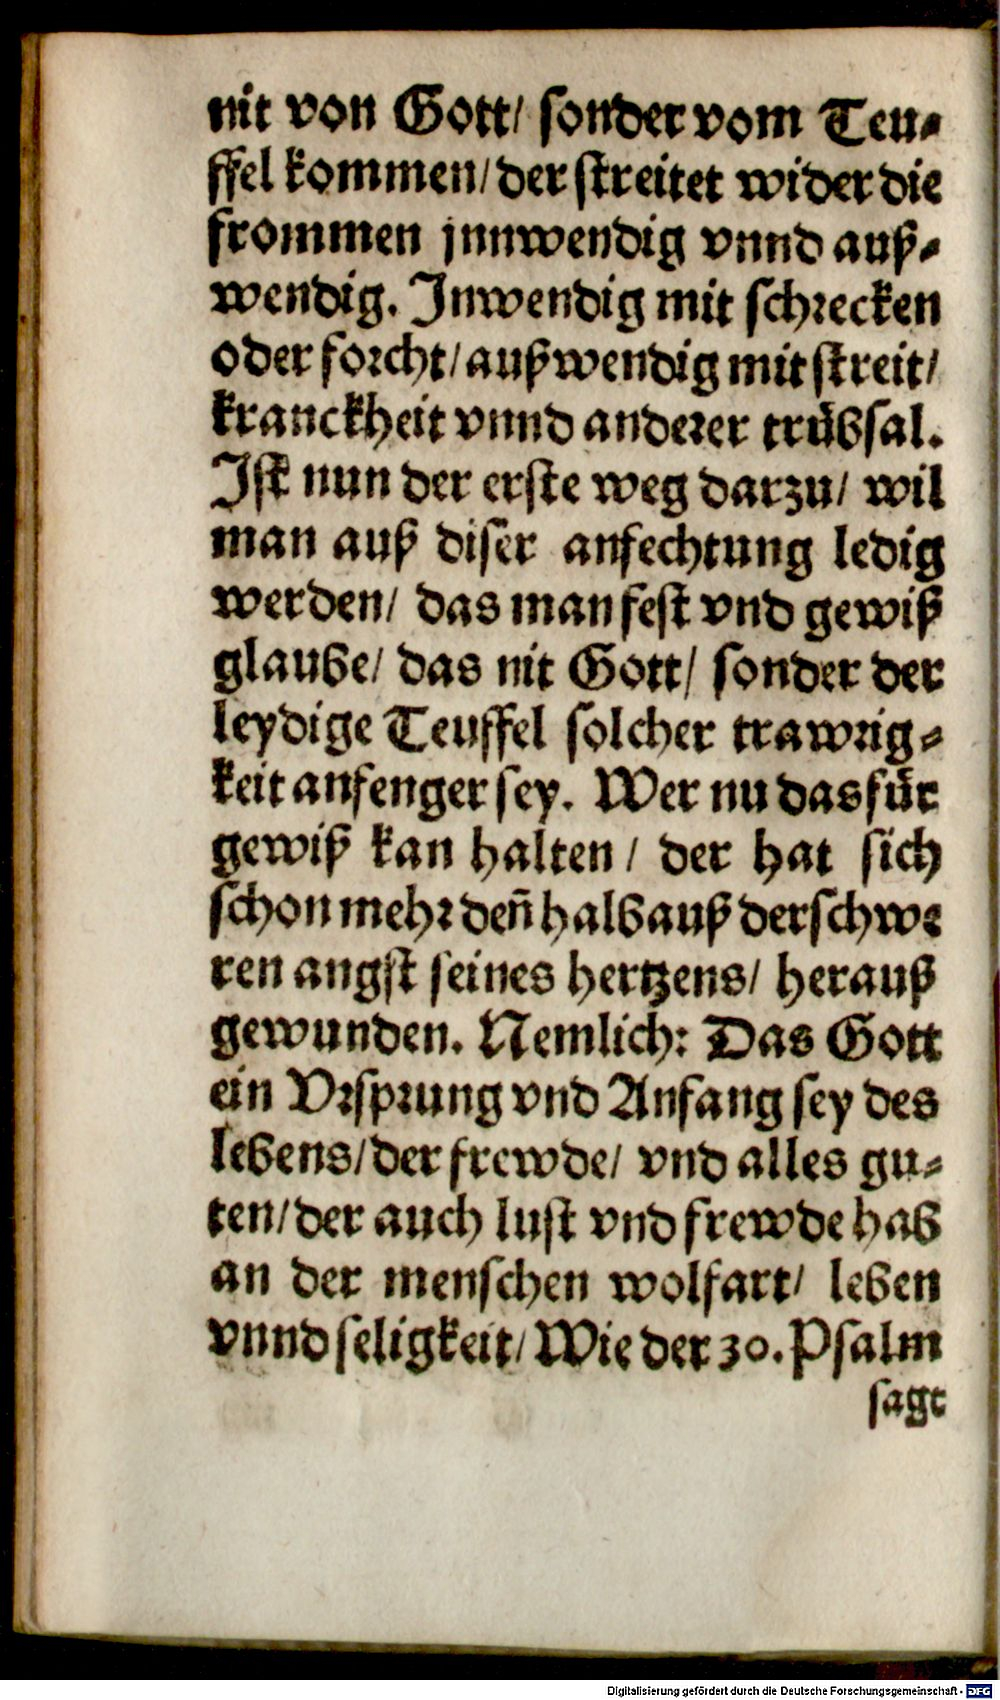 nit von Gott/ sonder vom Teu-
ffel kommen/ der streitet wider die
frommen jnnwendig vnnd auß-
wendig. Inwendig mit schrecken
oder forcht/ außwendig mit streit/
kranckheit vnnd anderer trübsal.
Ist nun der erste weg darzu/ wil
man auß diser anfechtung ledig
werden/ das man fest vnd gewiß
glaube/ das nit Gott/ sonder der
leydige Teuffel solcher trawrig-
keit anfenger sey. Wer nu das für
gewiß kan halten/ der hat sich
schon mehr deñ halb auß der schwe
ren angst seines hertzens/ herauß
gewunden. Nemlich: Das Gott
ein Vrsprung vnd Anfang sey des
lebens/ der frewde/ vnd alles gu-
ten/ der auch lust vnd frewde hab
an der menschen wolfart/ leben
vnnd seligkeit/ Wie der 30. Psalm
sagt
Digitalisierung gefördert durch die Deutsche Forschungsgemeinschaft - DFG